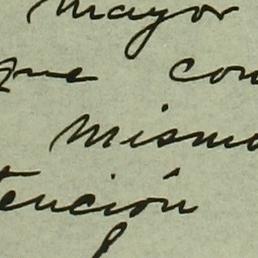 mayor
que con
misma
tención